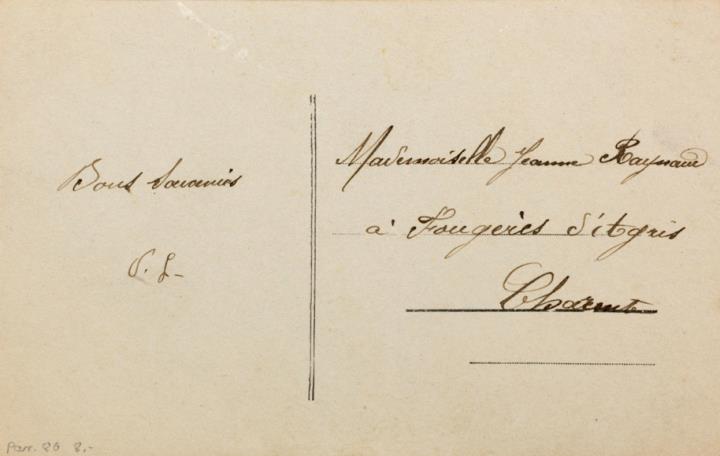 Bons Souvenirs
J. L-
Mademoiselle Jeanne Raynaud
à Fougères d'Agris
Charente
8,-